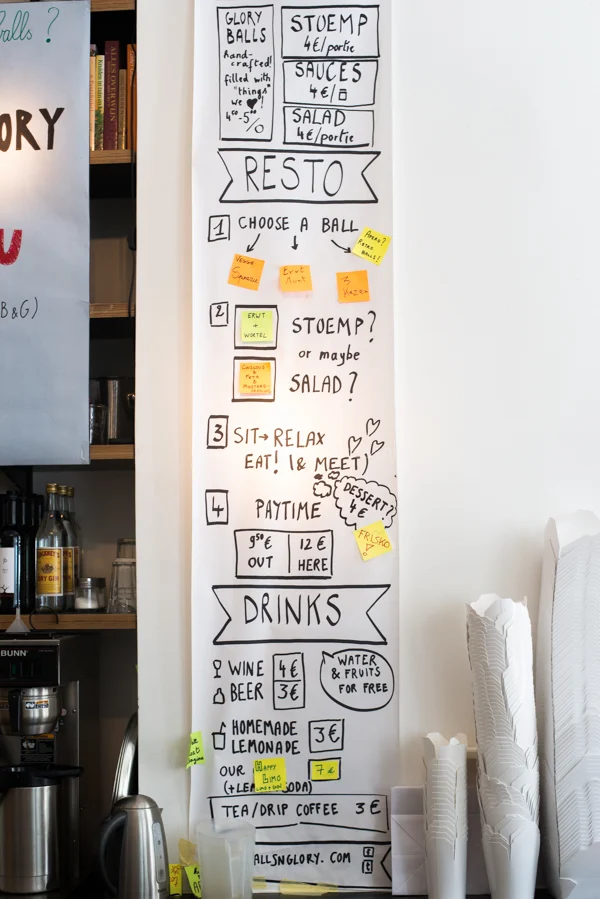 alls ?
ORY
U
B&G)
BUNN
DRY GIN
GLORY
BALLS
hand-
crafted!
filled with
"things"
we ♥!
STOEMP
4€/portie
SAUCES
4€/
SALAD
4€/portie
RESTO
1 CHOOSE A BALL
RETRO
BALLS!
VEGGIE
Spinazie
3
2 ERWT
+
WORTEL
STOEMP?
or maybe
SALAD?
3 SIT→ RELAX
EAT! (& MEET)
DESSERT?
4€
4 PAYTIME
FRISKO
!
9⁵⁰€ 12€
OUT HERE
DRINKS
WINE 4€
BEER 3€
WATER
& FRUITS
FOR FREE
HOMEMADE
LEMONADE 3€
OUR HAPPY
LIMO 7€
(+LE ODA)
TEA/DRIP COFFEE 3€
ALLSNGLORY.COM